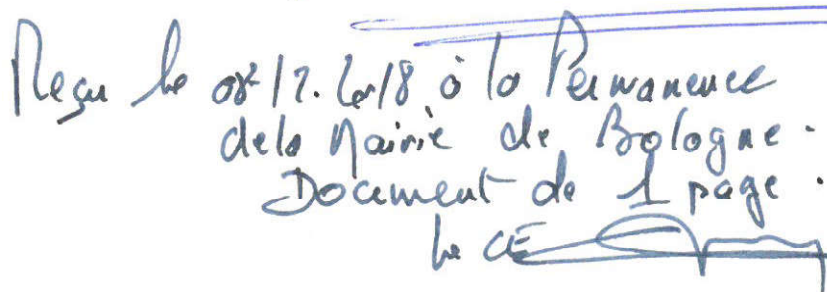 Reçu le 08/12.2018 à la Permanence
dela Mairie de Bologne.
Document de 1 page.
le CE